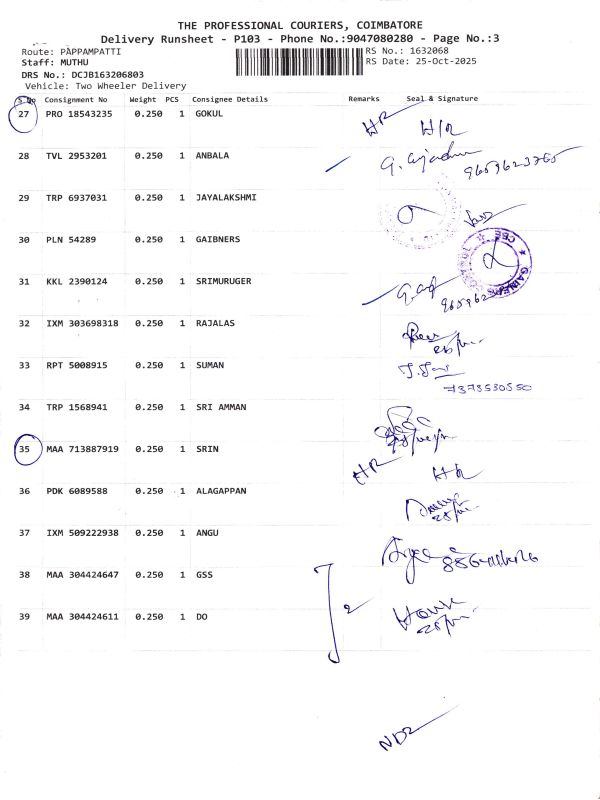 THE PROFESSIONAL COURIERS, COIMBATORE
Delivery Runsheet - P103 - Phone No.:9047080280 - Page No.:3
Route: PAPPAMPATTI
RS No.: 1632068
Staff: MUTHU
RS Date: 25-Oct-2025
DRS No.: DCJB163206803
Vehicle: Two Wheeler Delivery
S.No Consignment No Weight PCS Consignee Details Remarks Seal & Signature
27 PRO 18543235 0.250 1 GOKUL
28 TVL 2953201 0.250 1 ANBALA
29 TRP 6937031 0.250 1 JAYALAKSHMI
30 PLN 54289 0.250 1 GAIBNERS
31 KKL 2390124 0.250 1 SRIMURUGER
32 IXM 303698318 0.250 1 RAJALAS
33 RPT 5008915 0.250 1 SUMAN
7373530550
34 TRP 1568941 0.250 1 SRI AMMAN
35 MAA 713887919 0.250 1 SRIN
36 PDK 6089588 0.250 1 ALAGAPPAN
37 IXM 509222938 0.250 1 ANGU
38 MAA 304424647 0.250 1 GSS
2
39 MAA 304424611 0.250 1 DO